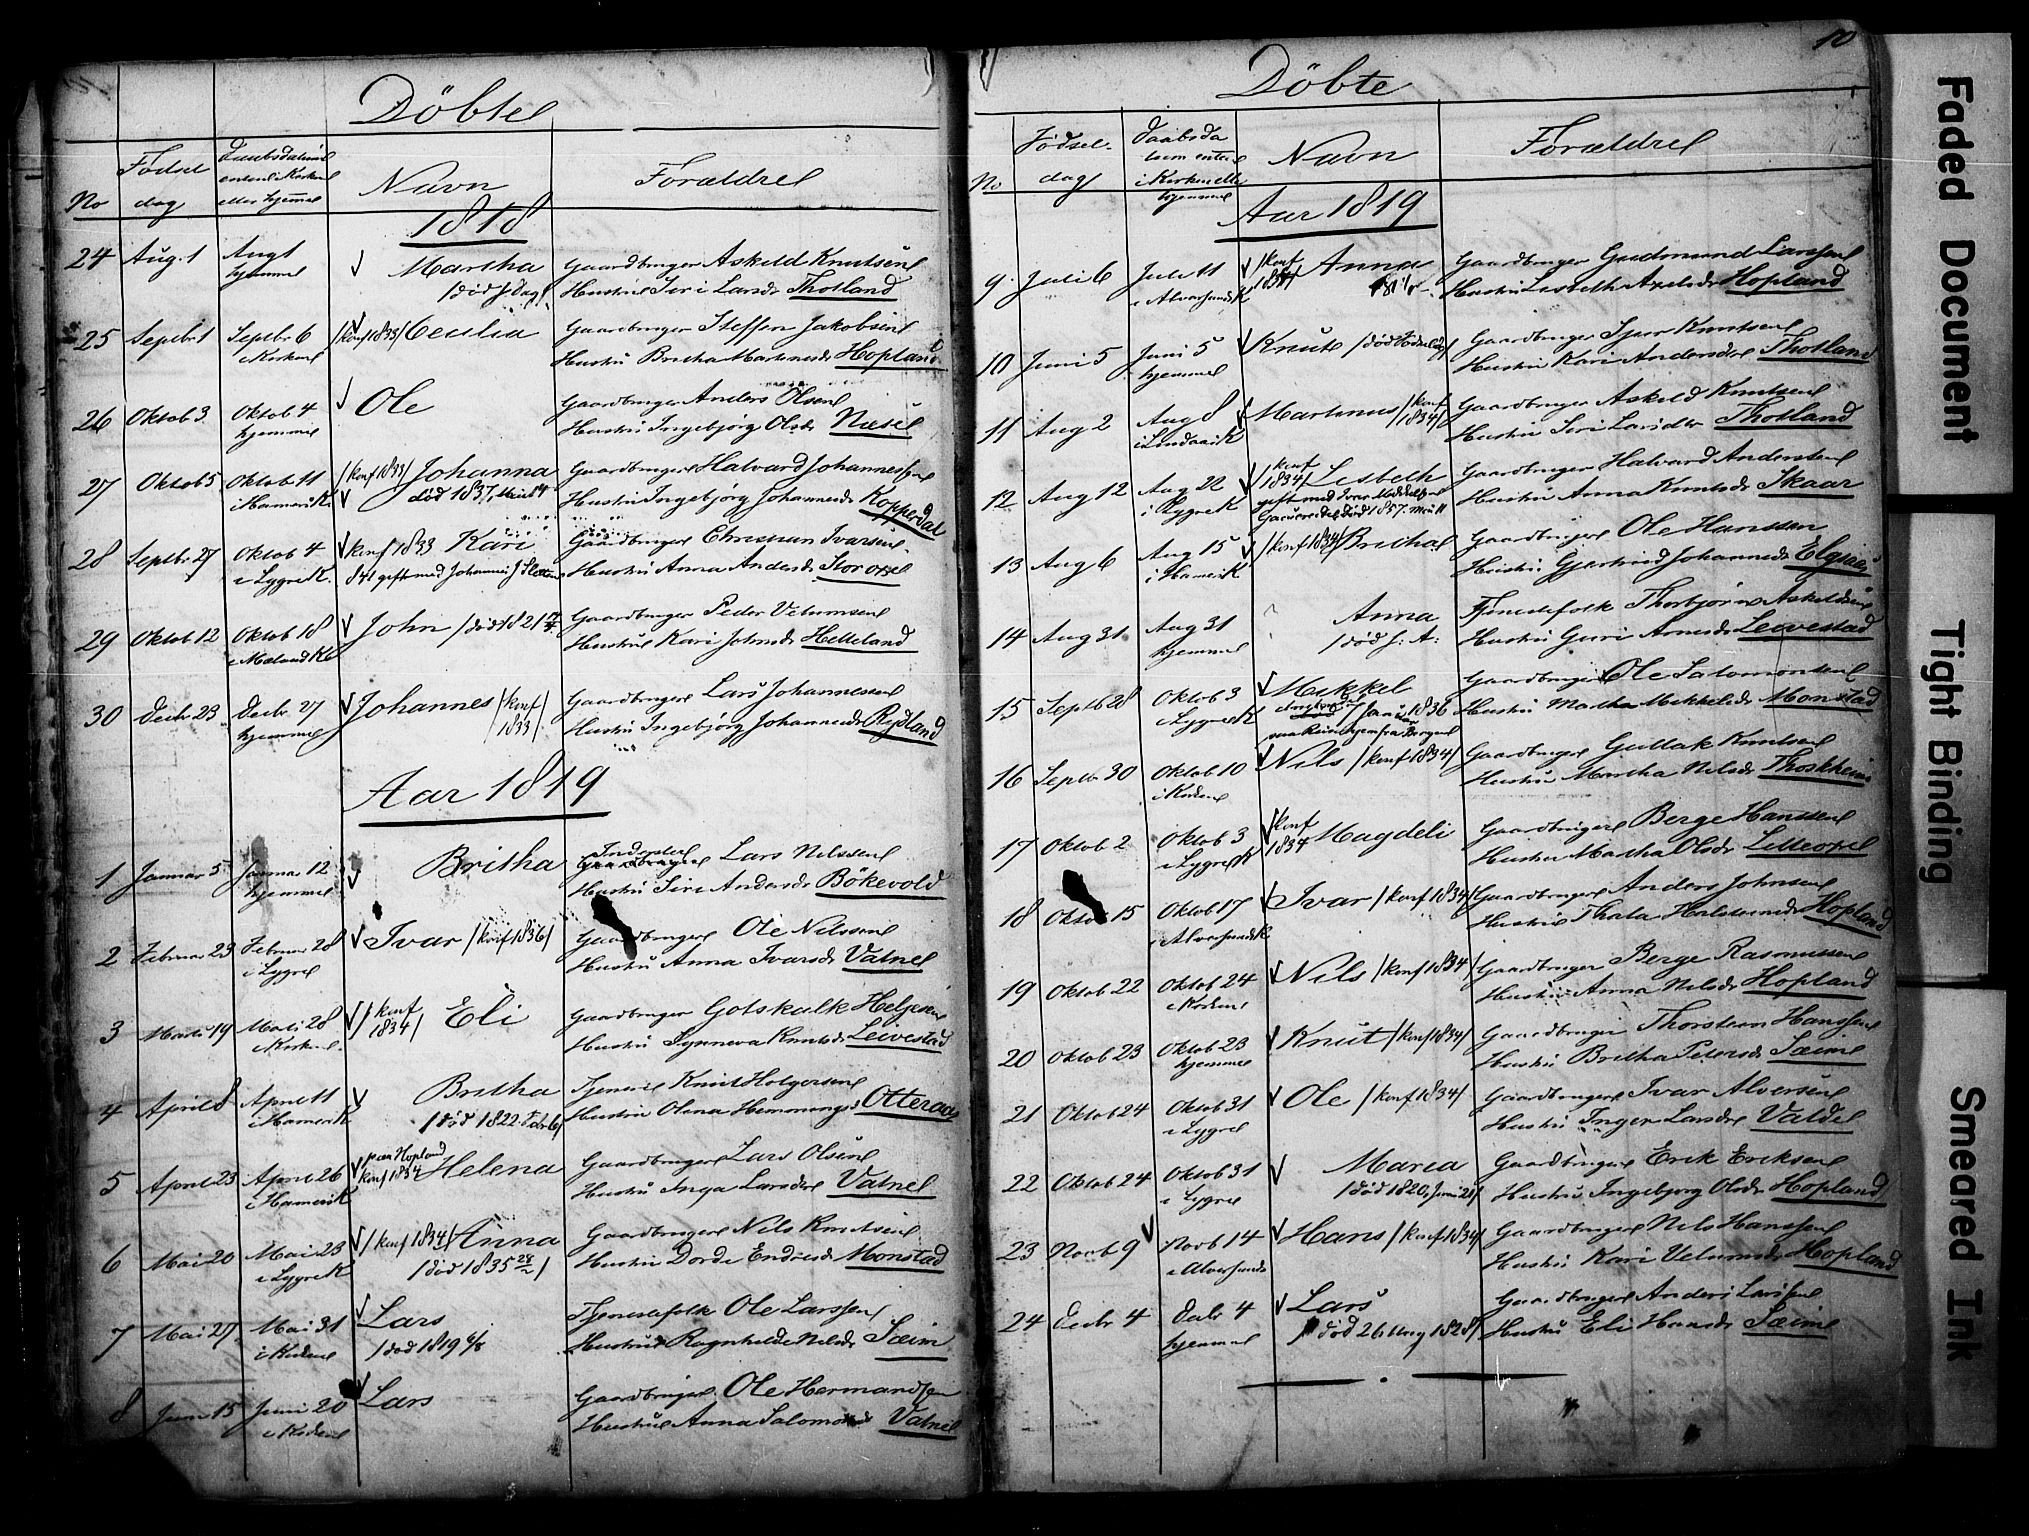 Döbte
No
Födsel dag
Daabsdatum enten i Kirken eller hjemme
Navn
Forældre
1818
24 Aug. 1 Aug 1 hjemme Martha /død s. Dag/ Gaardbruger Askeld Knutsen
Hustru Siri Larsdr Thotland
25 Septbr 1 Septbr 6 i Kirken /konf 1833/ Cecilia Gaardbruger Steffen Jakobsen
Hustru Britha Martinesdr Hopland
26 Oktob 3 Oktob 4 hjemme Ole Gaardbruger Anders Olsen
Hustru Ingebjørg Olsdr Næse
27 Oktob 5 Oktob 11 i Hamrik K. /konf 1833/ Johanna død 1837 Gaardbruger Halvard Johannessen
Hustru Ingebjørg Johannesdr Kopperdal
28 Septbr 27 Oktob 4 i Lygre K. konf 1833 Kari 841 gift med Johannes J Gaardbruger Christian Ivarsen
Hustru Anna Andersdr Storoxe
29 Oktob 12 Oktob 18 i Mæland K John /død 1821 Gaardbruger Peder Velumsen
Hustru Kari Johnsdr Helleland
30 Decbr 23 Decbr 27 hjemme Johannes /konf 1833/ Gaardbruger Lars Johannessen
Hustru Ingebjørg Johannesdr Rydland
Aar 1819
1 Januar 5 Januar 12 hjemme Britha Inderste Gaardbruger Lars Nilssen
Hustru Siri Andersdr Bökevold
2 Februar 23 Februar 28 i Lygre Ivar /konf 1836/ Gaardbruger Ole Nilssen
Hustru Anna Ivarsdr Vatne
3 Marts 19 Marts 28 i Kirken /konf 1834/ Eli Gaardbruger Gotskalk Helgesen
Hustru Synneva Knutsdr Leivestad
4 April 8 April 11 i Hamrik K Britha /død 1822 Febr 6/ Tjenere Knut Holgersen
Hustru Olena Hemmingsd Otteraa
5 April 23 April 26 i Hamrik K paa Hopland konf 1834 Helena Gaardbruger Lars Olsen
Hustru Inga Larsdr Vatne
6 Mai 20 Mai 23 i Lygre K /konf 1834/ Anna /død 1835 28/2/ Gaardbruger Nils Knutsen
Hustru Dorde Endresdr Monstad
7 Mai 27 Mai 31 i Kirken Lars /død 1819 4/8 Tjenestefolk Ole Larssen
Hustru Ragnhilde Nilsdr Sæim
8 Juni 15 Juni 20 i Kirken Lars Gaardbruger Ole Hermandsen
Hustru Anna Salomonsd Vatne
10
Döbte
No
Födsel. dag
Daabsdatum enten i Kirken eller hjemme
Navn
Forældre
Aar 1819
9 Juli 6 Juli 11 i Alversund K /konf 1834/ Anna Gaardbruger Gudmund Larssen
Hustru Lisbeth Axelsdr Hopland
10 Juni 5 Juni 5 hjemme Knut /død Gaardbruger Sjur Knutsen
Hustru Kari Andersdr Thotland
11 Aug 2 Aug 8 i Lindaas K Martinus /konf 1834/ Gaardbruger Askeld Knutsen
Hustru Siri Larsdtr Thotland
12 Aug 12 Aug 22 i Lygre K /konf 1834/ Lisbeth gift med Ivar død 1857 Gaardbruger Halvard Andersen
Hustru Anna Knutsdr Skaar
13 Aug 6 Aug 15 i Hamrik /konf 1834/ Britha Gaardbruger Ole Hanssen
Hustru Gjertrud Johannesdr Elgnæs
14 Aug 31 Aug 31 hjemme Anna /død s: A: Tjenestefolk Thorbjørn Askeldsen
Hustru Guri Arnesdr Leivestad
15 Septb 28 Oktob 3 i Lygre K Mikkel Jan 1836 paa Reise hjem fra Bergen Gaardbruger Ole Salomonsen
Hustru Martha Mikkelsdr Monstad
16 Septbr 30 Oktob 10 i Kirken Nils /konf 1834/ Gaardbruger Gullak Knutsen
Hustru Martha Nilsdr Thoskheim
17 Oktob 2 Oktob 3 i Lygre K /konf 1834 Magdeli Gaardbruger Berge Hanssen
Hustru Martha Olsdr Lilleoxe
18 Oktob 15 Oktob 17 i Alversund K Ivar /konf 1834/ Gaardbruger Anders Johnsen
Hustru Thala Halsteinsdr Hopland
19 Oktob 22 Oktob 24 i Kirken Nils /konf 1834/ Gaardbruger Berge Rasmussen
Hustru Anna Nilsdr Hopland
20 Oktob 23 Oktob 23 hjemme Knut /konf 1834/ Gaardbruger Thorstein Hanssen
Hustru Britha Petersdr Sæim
21 Oktob 24 Oktob 31 i Lygre Ole /konf 1834/ Gaardbruger Ivar Alversen
Hustru Inger Larsdr Valde
22 Oktob 24 Oktob 31 i Lygre Maria /død 1820, Juni 28/ Gaardbruger Erik Eriksen
Hustru Ingebjørg Olsdr Hopland
23 Novb 9 Novb 14 i Alversund Hans /konf 1834/ Gaardbruger Nils Hanssen
Hustru Kari Velumsdr Hopland
24 Decbr 4 Decbr 4 hjemme Lars død 26 Aug 1828/ Gaardbruger Anders Larssen
Hustru Eli Hansdr Sæim
Faded Document
Tight Binding
Smeared Ink